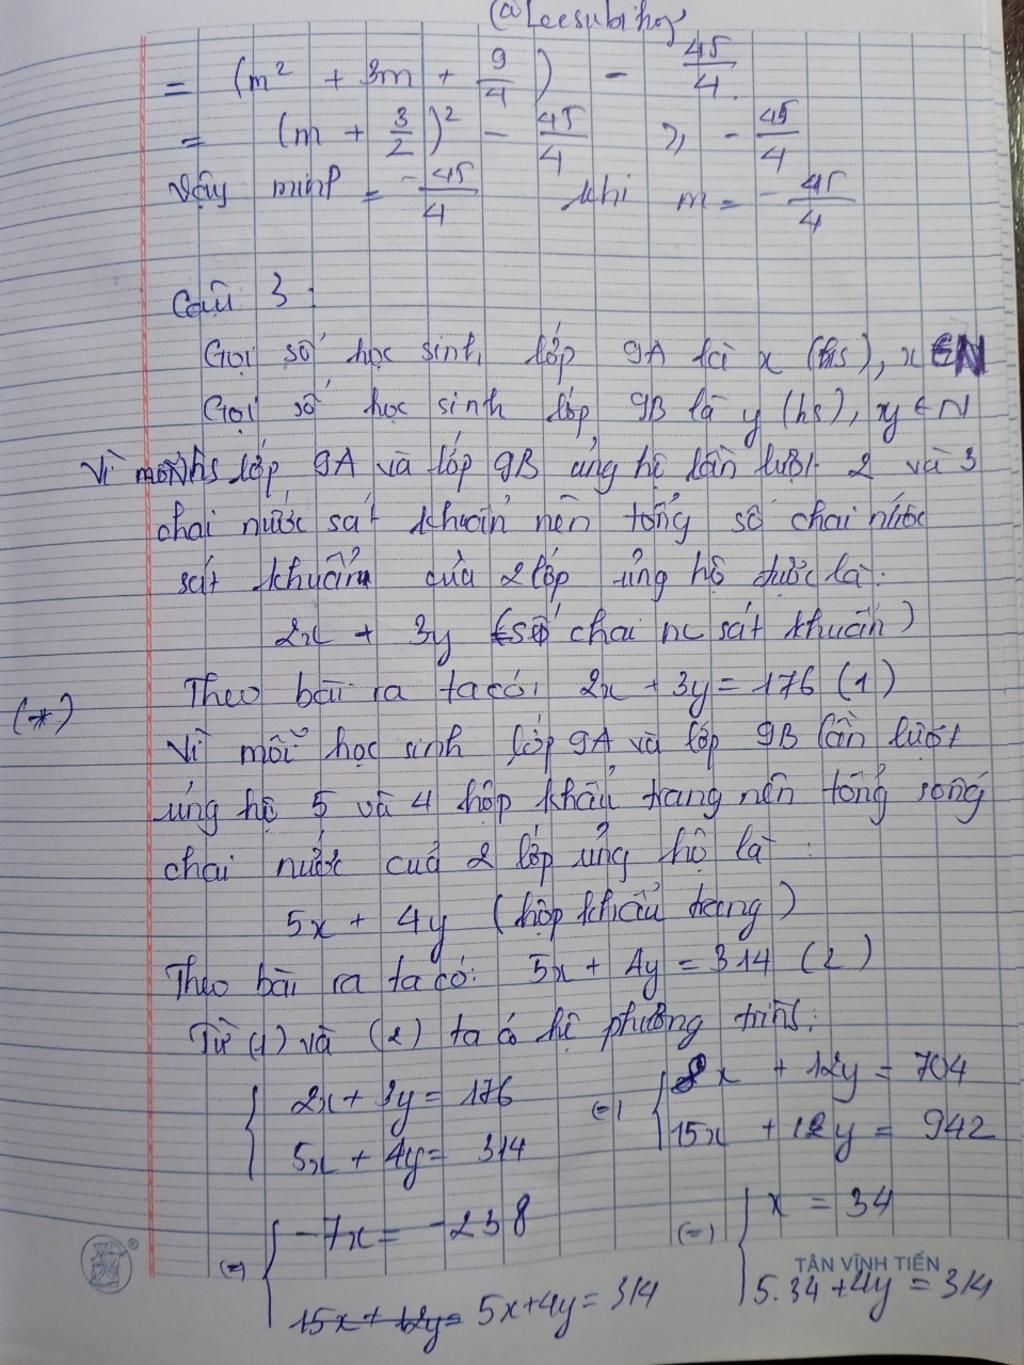 @Leesubihoy
= (m² + 3m + 9/4) - 45/4.
= (m + 3/2)² - 45/4 ⩾ - 45/4
Vậy minP = -45/4 khi m = -45/4
Câu 3:
Gọi số học sinh lớp 9A là x (hs), x ∈ N
Gọi số học sinh lớp 9B là y (hs), y ∈ N
Vì mỗi hs lớp 9A và lớp 9B ủng hộ lần lượt 2 và 3
chai nước sát khuẩn nên tổng số chai nước
sát khuẩn của 2 lớp ủng hộ được là:
2x + 3y (số chai nc sát khuẩn)
Theo bài ra ta có: 2x + 3y = 176 (1)
(*)
Vì mỗi học sinh lớp 9A và lớp 9B lần lượt
ủng hộ 5 và 4 hộp khẩu trang nên tổng song
chai nước của 2 lớp ủng hộ là:
5x + 4y (hộp khẩu trang)
Theo bài ra ta có: 5x + 4y = 314 (2)
Từ (1) và (2) ta có hệ phương trình:
{ 2x + 3y = 176 (=) { 8x + 12y = 704
5x + 4y = 314 15x + 12y = 942
(=) { -7x = -238 (=) { x = 34
TÂN VĨNH TIẾN
15x + 12y = 5x + 4y = 314 5.34 + 4y = 314